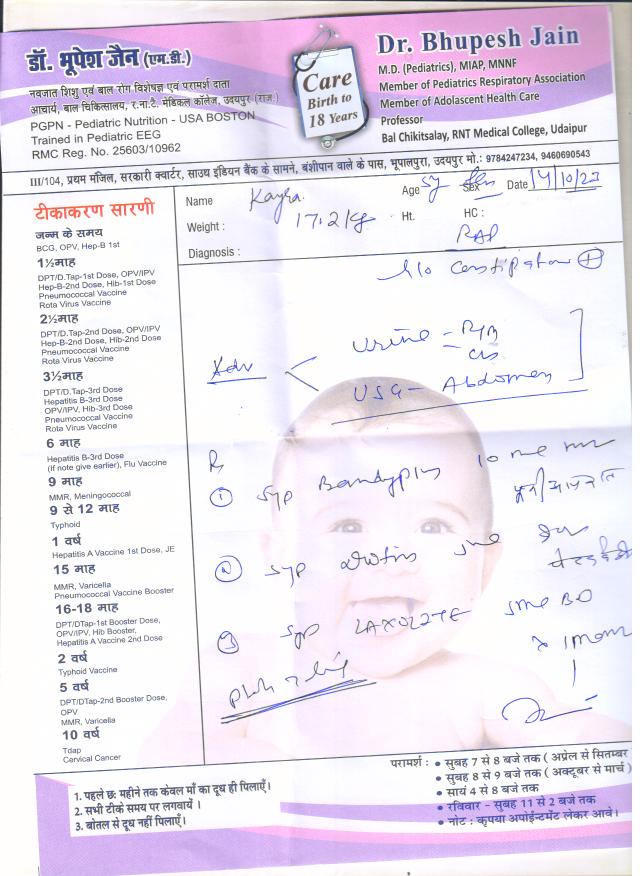 डॉ. भूपेश जैन (एम.डी.)
नवजात शिशु एवं बाल रोग विशेषज्ञ एवं परामर्श दाता
आचार्य, बाल चिकित्सालय, र.ना.टै. मेडिकल कॉलेज, उदयपुर (राज.)
PGPN - Pediatric Nutrition - USA BOSTON
Trained in Pediatric EEG
RMC Reg. No. 25603/10962
Care
Birth to
18 Years
Dr. Bhupesh Jain
M.D. (Pediatrics), MIAP, MNNF
Member of Pediatrics Respiratory Association
Member of Adolascent Health Care
Professor
Bal Chikitsalay, RNT Medical College, Udaipur
III/104, प्रथम मंजिल, सरकारी क्वार्टर, साउथ इंडियन बैंक के सामने, बंशीपान वाले के पास, भूपालपुरा, उदयपुर मो.: 9784247234, 9460690543
टीकाकरण सारणी
जन्म के समय
BCG, OPV, Hep-B 1st
1½माह
DPT/D.Tap-1st Dose, OPV/IPV
Hep-B-2nd Dose, Hib-1st Dose
Pneumococcal Vaccine
Rota Virus Vaccine
2½माह
DPT/D.Tap-2nd Dose, OPV/IPV
Hep-B-2nd Dose, Hib-2nd Dose
Pneumococcal Vaccine
Rota Virus Vaccine
3½माह
DPT/D.Tap-3rd Dose
Hepatitis B-3rd Dose
OPV/IPV, Hib-3rd Dose
Pneumococcal Vaccine
Rota Virus Vaccine
6 माह
Hepatitis B-3rd Dose
(if note give earlier), Flu Vaccine
9 माह
MMR, Meningococcal
9 से 12 माह
Typhoid
1 वर्ष
Hepatitis A Vaccine 1st Dose, JE
15 माह
MMR, Varicella
Pneumococcal Vaccine Booster
16-18 माह
DPT/DTap-1st Booster Dose,
OPV/IPV, Hib Booster,
Hepatitis A Vaccine 2nd Dose
2 वर्ष
Typhoid Vaccine
5 वर्ष
DPT/DTap-2nd Booster Dose,
OPV
MMR, Varicella
10 वर्ष
Tdap
Cervical Cancer
Name Kayra Age 5y Sex Date 14/10/23
Weight : 17.2 kg Ht. HC :
Diagnosis : RAP
h/o constipation +
Adv Urine - R/M
- c/s
USG - Abdomen
Rx
① Syp Bandyplus 10 ml
② Syp 5ml
③ Syp LAXOLITE 5ml BD
x 1 mon
परामर्श : • सुबह 7 से 8 बजे तक ( अप्रेल से सितम्बर
• सुबह 8 से 9 बजे तक ( अक्टूबर से मार्च )
• सायं 4 से 8 बजे तक
• रविवार - सुबह 11 से 2 बजे तक
• नोट : कृपया अपोईन्टमेंट लेकर आवे।
1. पहले छः महीने तक केवल माँ का दूध ही पिलाएँ।
2. सभी टीके समय पर लगवायें ।
3. बोतल से दूध नहीं पिलाएँ।